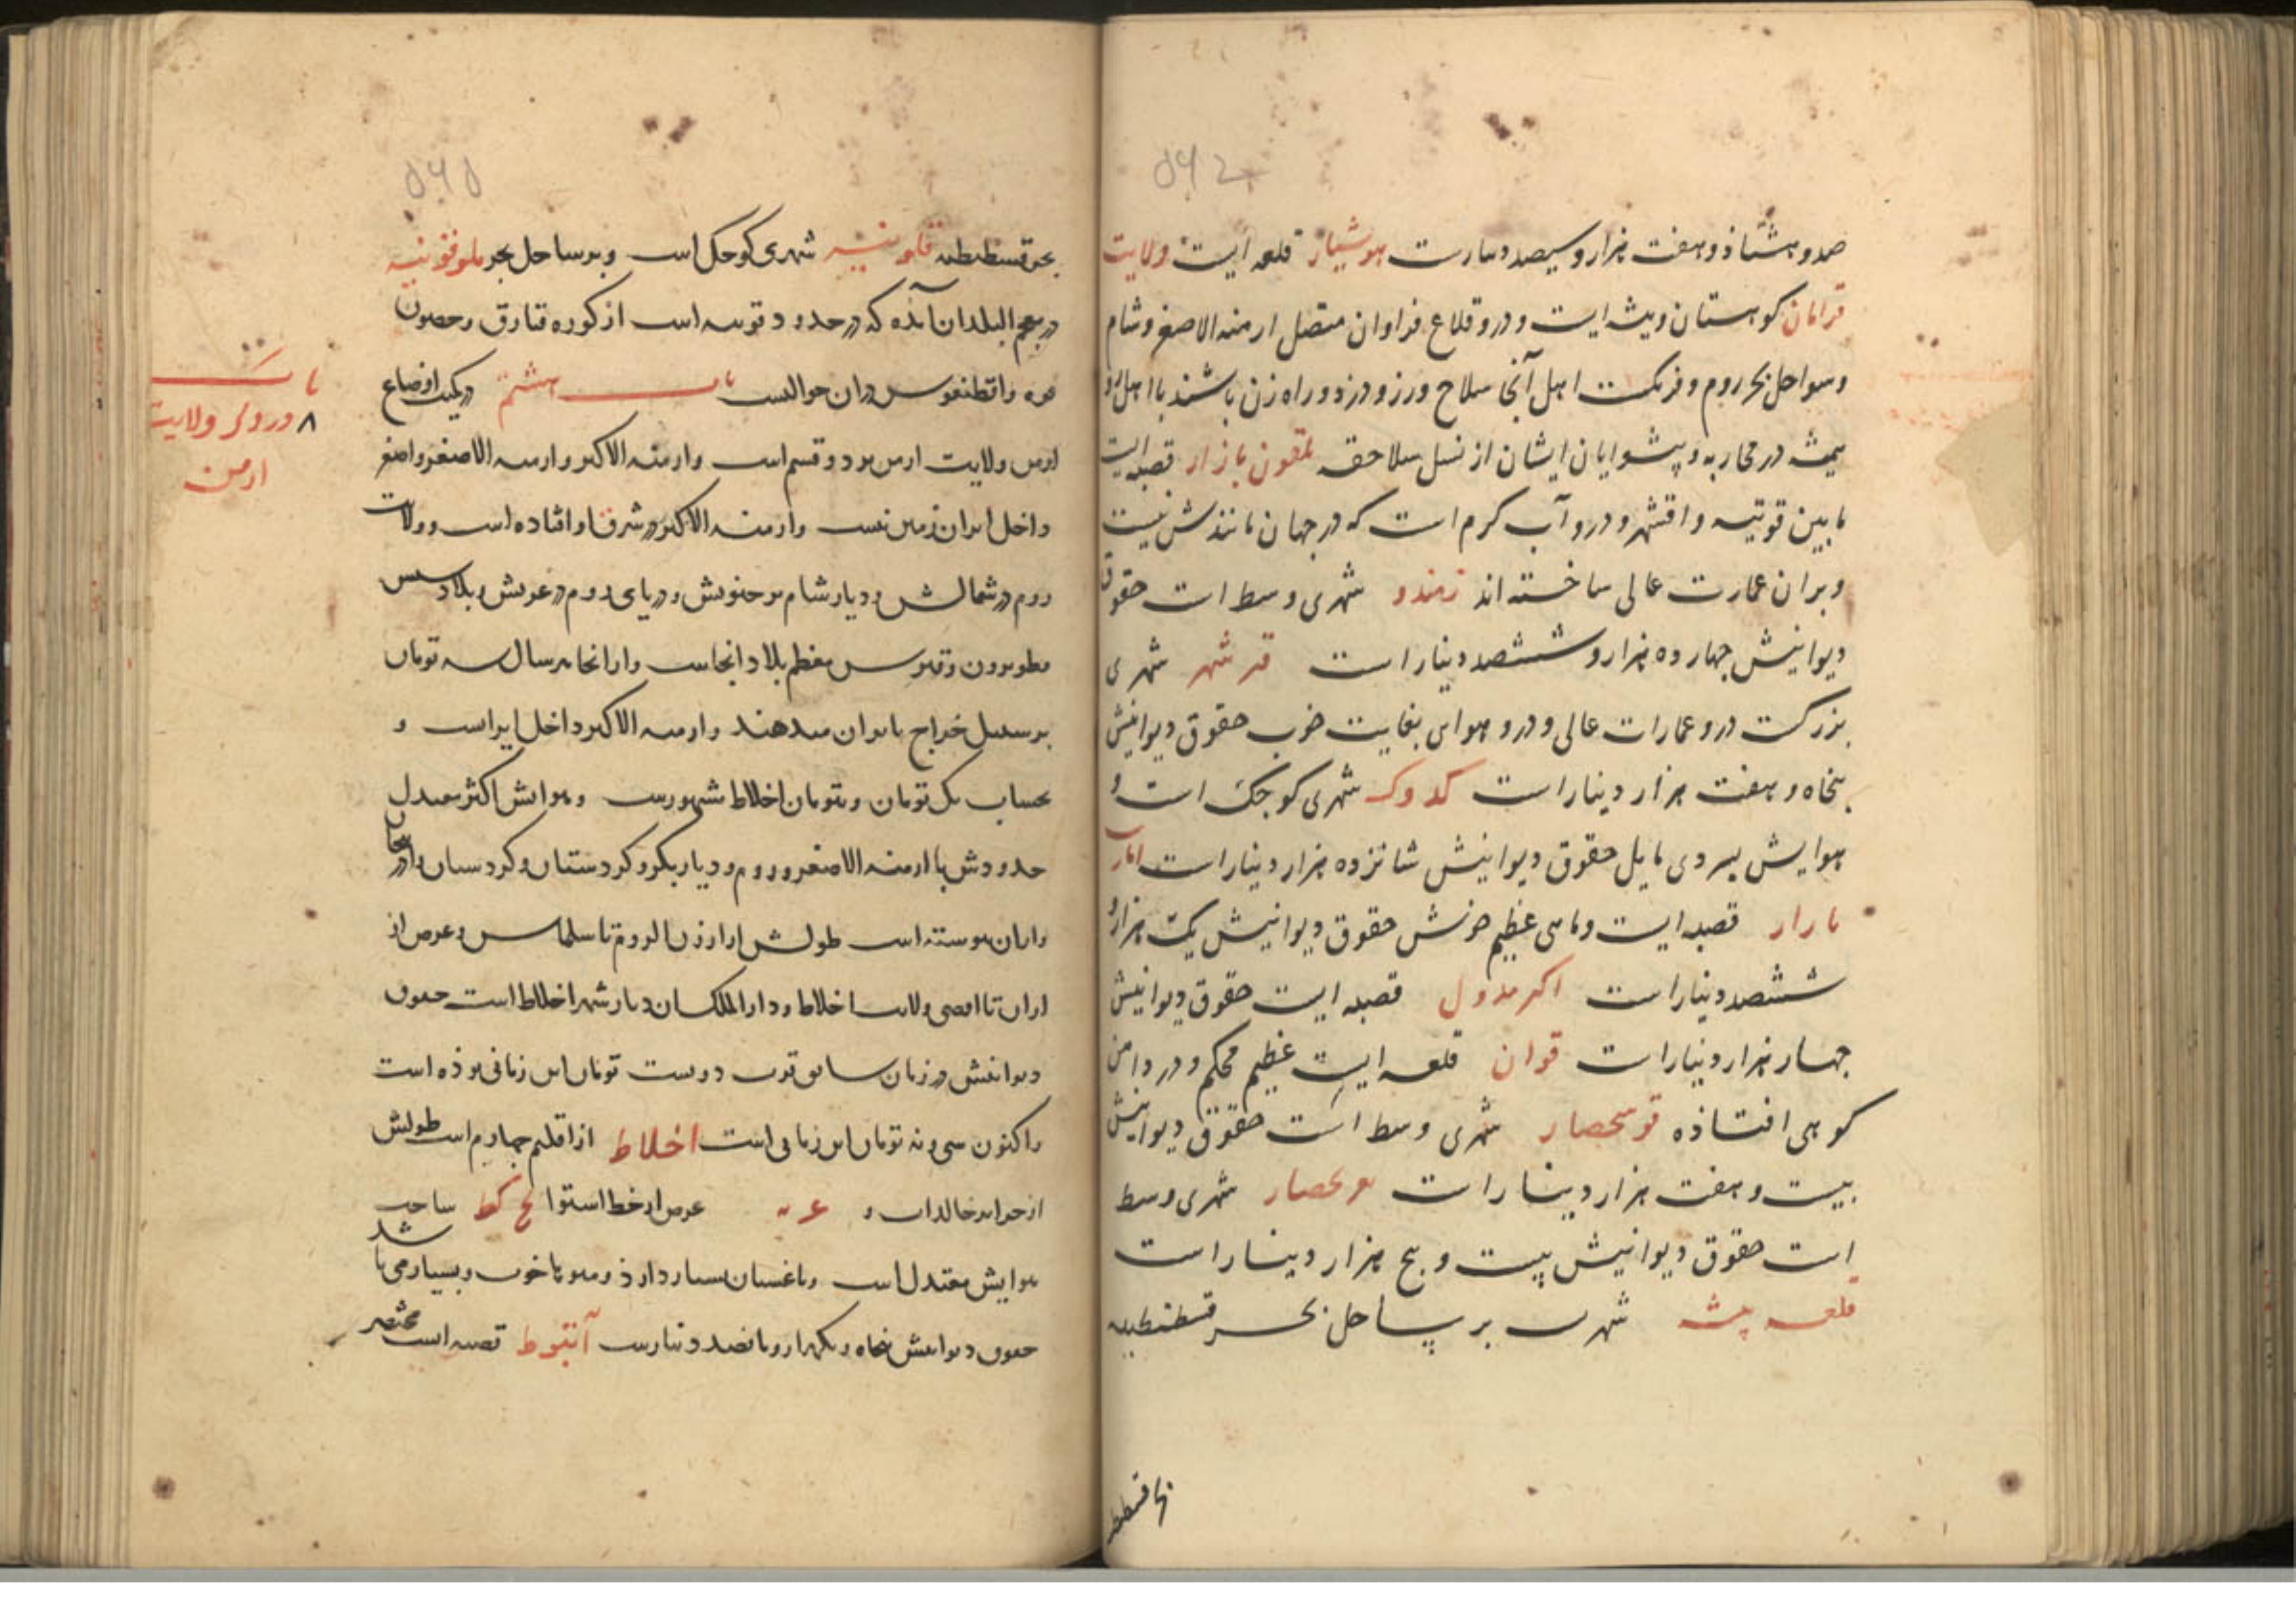 ۵۴۲
صدو هشتاذ و هفت هزار و سیصد دینارست هوشیار قلعه ایست ولایت
قرامان کوهستان و بیشه ایست و درو قلاع فراوان متصل ارمنه الاصغر و شام
و سواحل بحر روم و فرنگست اهل آنجا سلاح ورز و دزد و راه زن باشند با اهل
همیشه در محاربه و پیشوایان ایشان از نسل سلاحقه بلقون بازار قصبه ایست
مابین قونیه و اقشهر و درو آب کرم است که در جهان مانندش نیست
و بران عمارت عالی ساخته اند زمندو شهری وسط است حقوق
دیوانیش چهارده هزار و ششصد دینار است قرشهر شهری
بزرکست درو عمارات عالی و درو هوایی بغایت خوب حقوق دیوانیش
پنجاه و هفت هزار دینار است کدوک شهری کوجک است و
هوایش بسردی مایل حقوق دیوانیش شانزده هزار دینار است
بازار قصبه ایست و ماهی عظیم خوش حقوق دیوانیش یک هزار و
ششصد دینار است اکرمدول قصبه ایست حقوق دیوانیش
چهار هزار دینار است قوان قلعه ایست عظیم محکم و در دامن
کوهی افتاذه قوسحصار شهری وسط است حقوق دیوانیش
بیست و هفت هزار دینار است شهری وسط
است حقوق دیوانیش بیست و پنج هزار دینار است
قلعه شهریست بر ساحل بحر قسطنطنیه
۵۴۵
بحر قسطنطنیه قلونیه شهری کوجک است و بر ساحل بحر ملوقونیه
در معجم البلدان آمده که در حدود قونیه است از کوره قبارق و حصون
دران حوالیست باب هشتم در کیفیت اوضاع
ارمن ولایت ارمن بر دو قسم است و ارمنه الاکبر و ارمنه الاصغر و اصغر
داخل ایران زمین نیست و ارمنه الاکبر در شرق او افتاده است و ولایت
روم در شمالش و دیار شام بر جنوبش و دریای روم در غربش و بلاد سیس
و قبرس معظم بلاد انجاست و از انجا هر سال سه تومان
بر سبیل خراج بایران میدهند و ارمنه الاکبر داخل ایراست و
بحساب یک تومان و بتومان اخلاط مشهورست و هوایش اکثر معتدل
حدودش با ارمنه الاصغر و روم و دیار بکر و کردستان و کردستان و اذربیجان
و اران پیوسته است طولش از ارزن الروم تا سلماس و عرض از
اران تا اقصی ولایت اخلاط و دارالملک ان دیار شهر اخلاط است حقوق
دیوانیش در زمان سابق قرب دویست تومان این زمانی بوذه است
و اکنون سی و نه تومان این زمانی است اخلاط از اقلیم چهارم است طولش
از جزایر خالدات عه عرض از خط استوا لح کط
هوایش معتدل است و باغستان بسیار دارذ و میوها خوب و بسیار می باشد
حقوق دیوانیش پنجاه و یکهزار و پانصد دینارست آبنوط قصبه است مختصر
باب
۸ در ذکر ولایت
ارمن